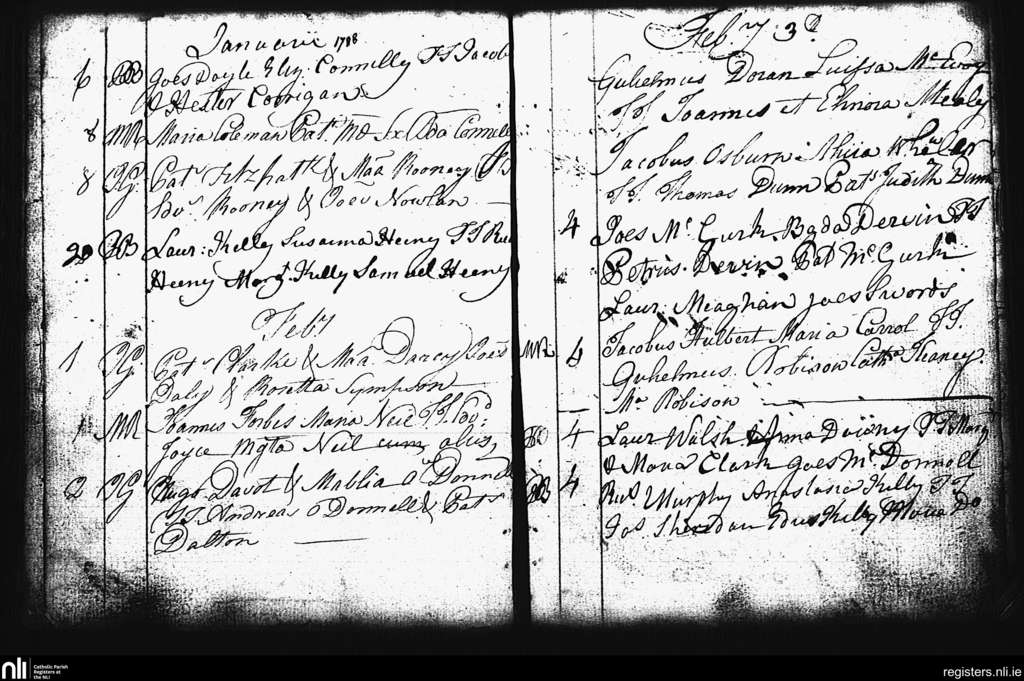 Januarii 1788
6 Joes Doyle Eliz: Connelly TT Jacob
& Hester Corrigan
8 MR Maria Coleman Pat
8 Patr Fitzpatk & Maa Rooney TTs
Rooney & Nowlan
20 Laur: Kelly Susanna Heeny TT
Heeny Margt Kelly Samuel Heeny
Feby
1 Patr Clarke & Maa Darcey Joes
Daly & Rosetta Sympson
1 MR Joannes Forbis Maria Neil TT.
Joyce Mgta Neil cum aliis
2 Hugo Davot & Mablia O Donnell
TT. Andreas O Donnell & Patr
Dalton
Feby 3d
Gulielmus Doran Luissa Mc
TT. Joannes et Elinora Mealy
Jacobus Osburn Wheeler
TT. Thomas Dunn Pats Judith Dunn
4 Joes Mc Gurk Bgda Dervin TT
Petrius Dervin Pat Mc Gurk
Laur Meaghan Joes Swords
MR 4 Jacobus Hulbert Maria Carrol TT.
Gulielmus Robison Cathe Keaney
Ma Robison
4 Laur Walsh Anna TT Mary
& Maria Clark Joes Mc Donnoll
4 Murphy Anastasia Kelly TT
Jos. Sheredan Kelly Maria Do
nli
Catholic Parish
Registers at
the NLI
registers.nli.ie